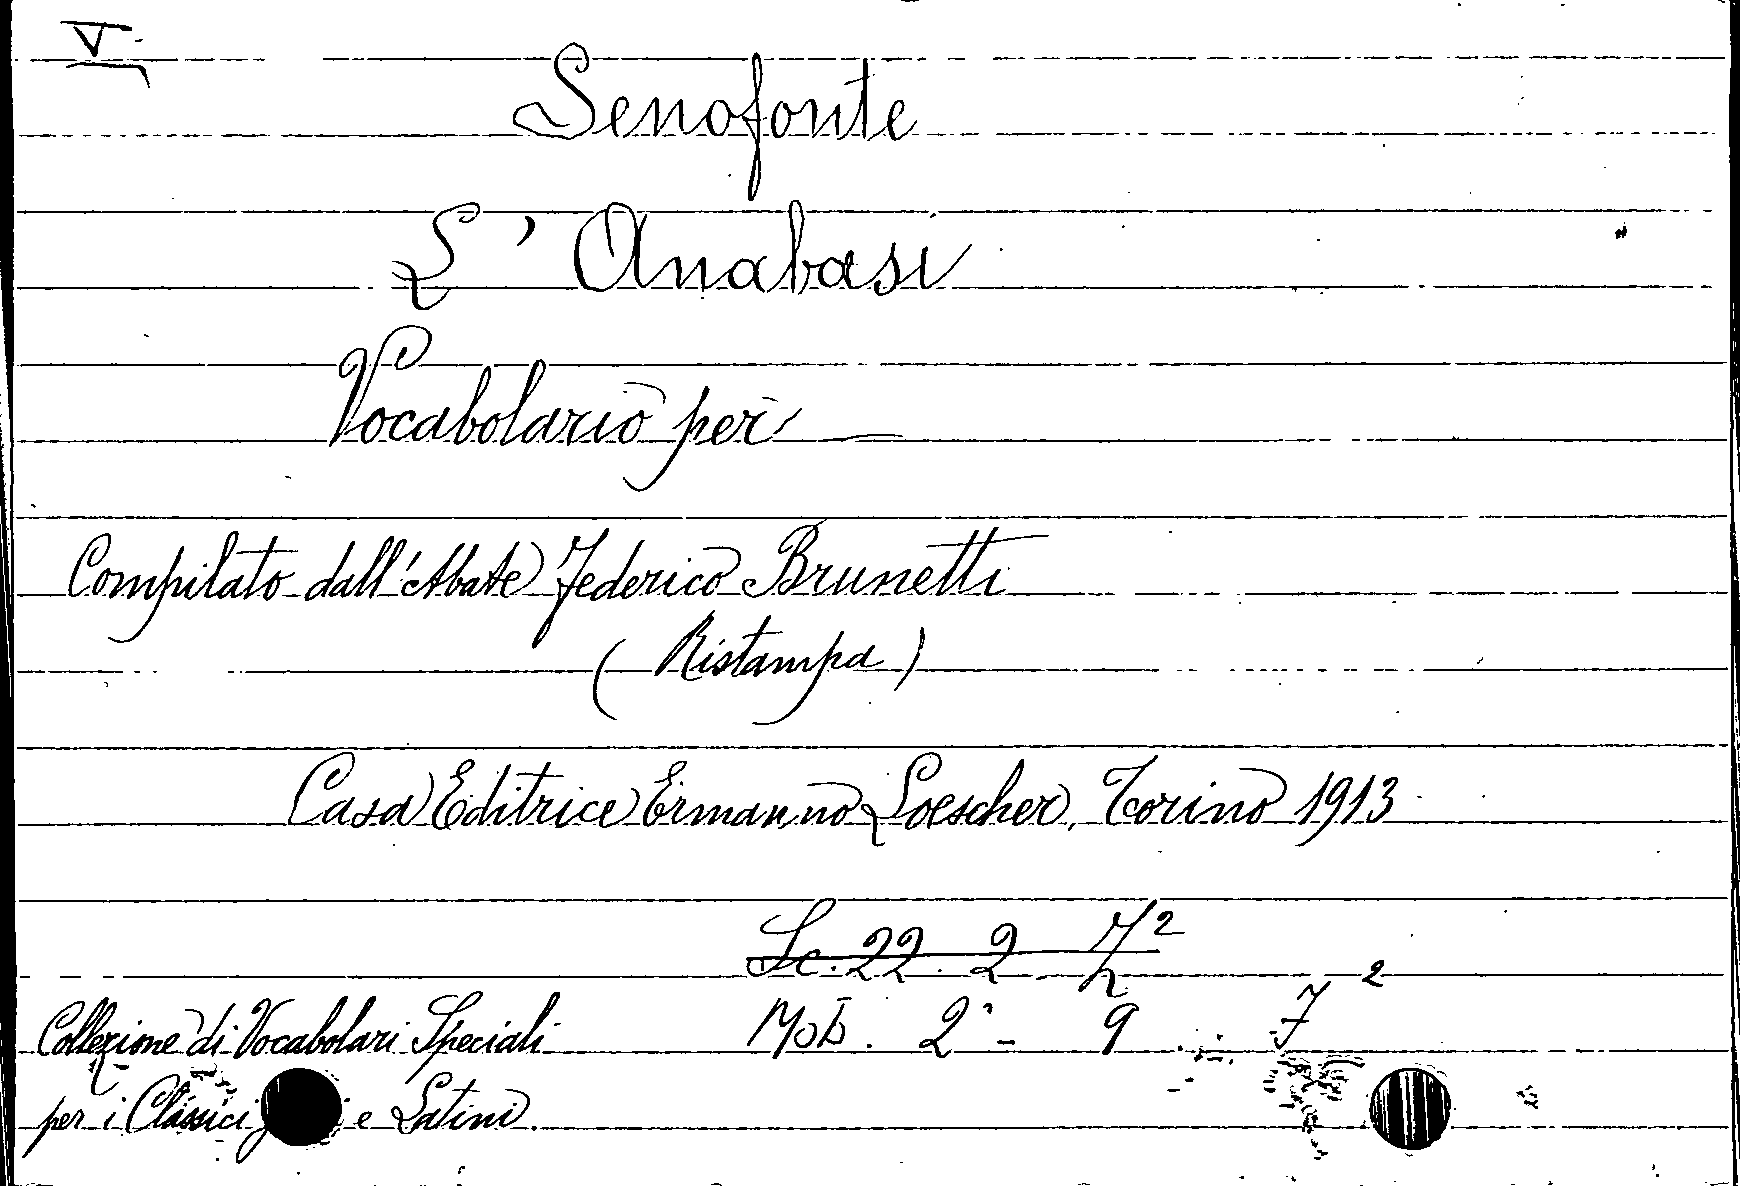 V.
Senofonte
L' Anabasi
Vocabolario per
Compilato dall'Abate Federico Brunetti
(Ristampa)
Casa Editrice Ermanno Loescher, Torino 1913
Sc. 22. 2
2
Mob. 2ª - 9 7
Collezione di Vocabolari Speciali
per i Classici e Latini.